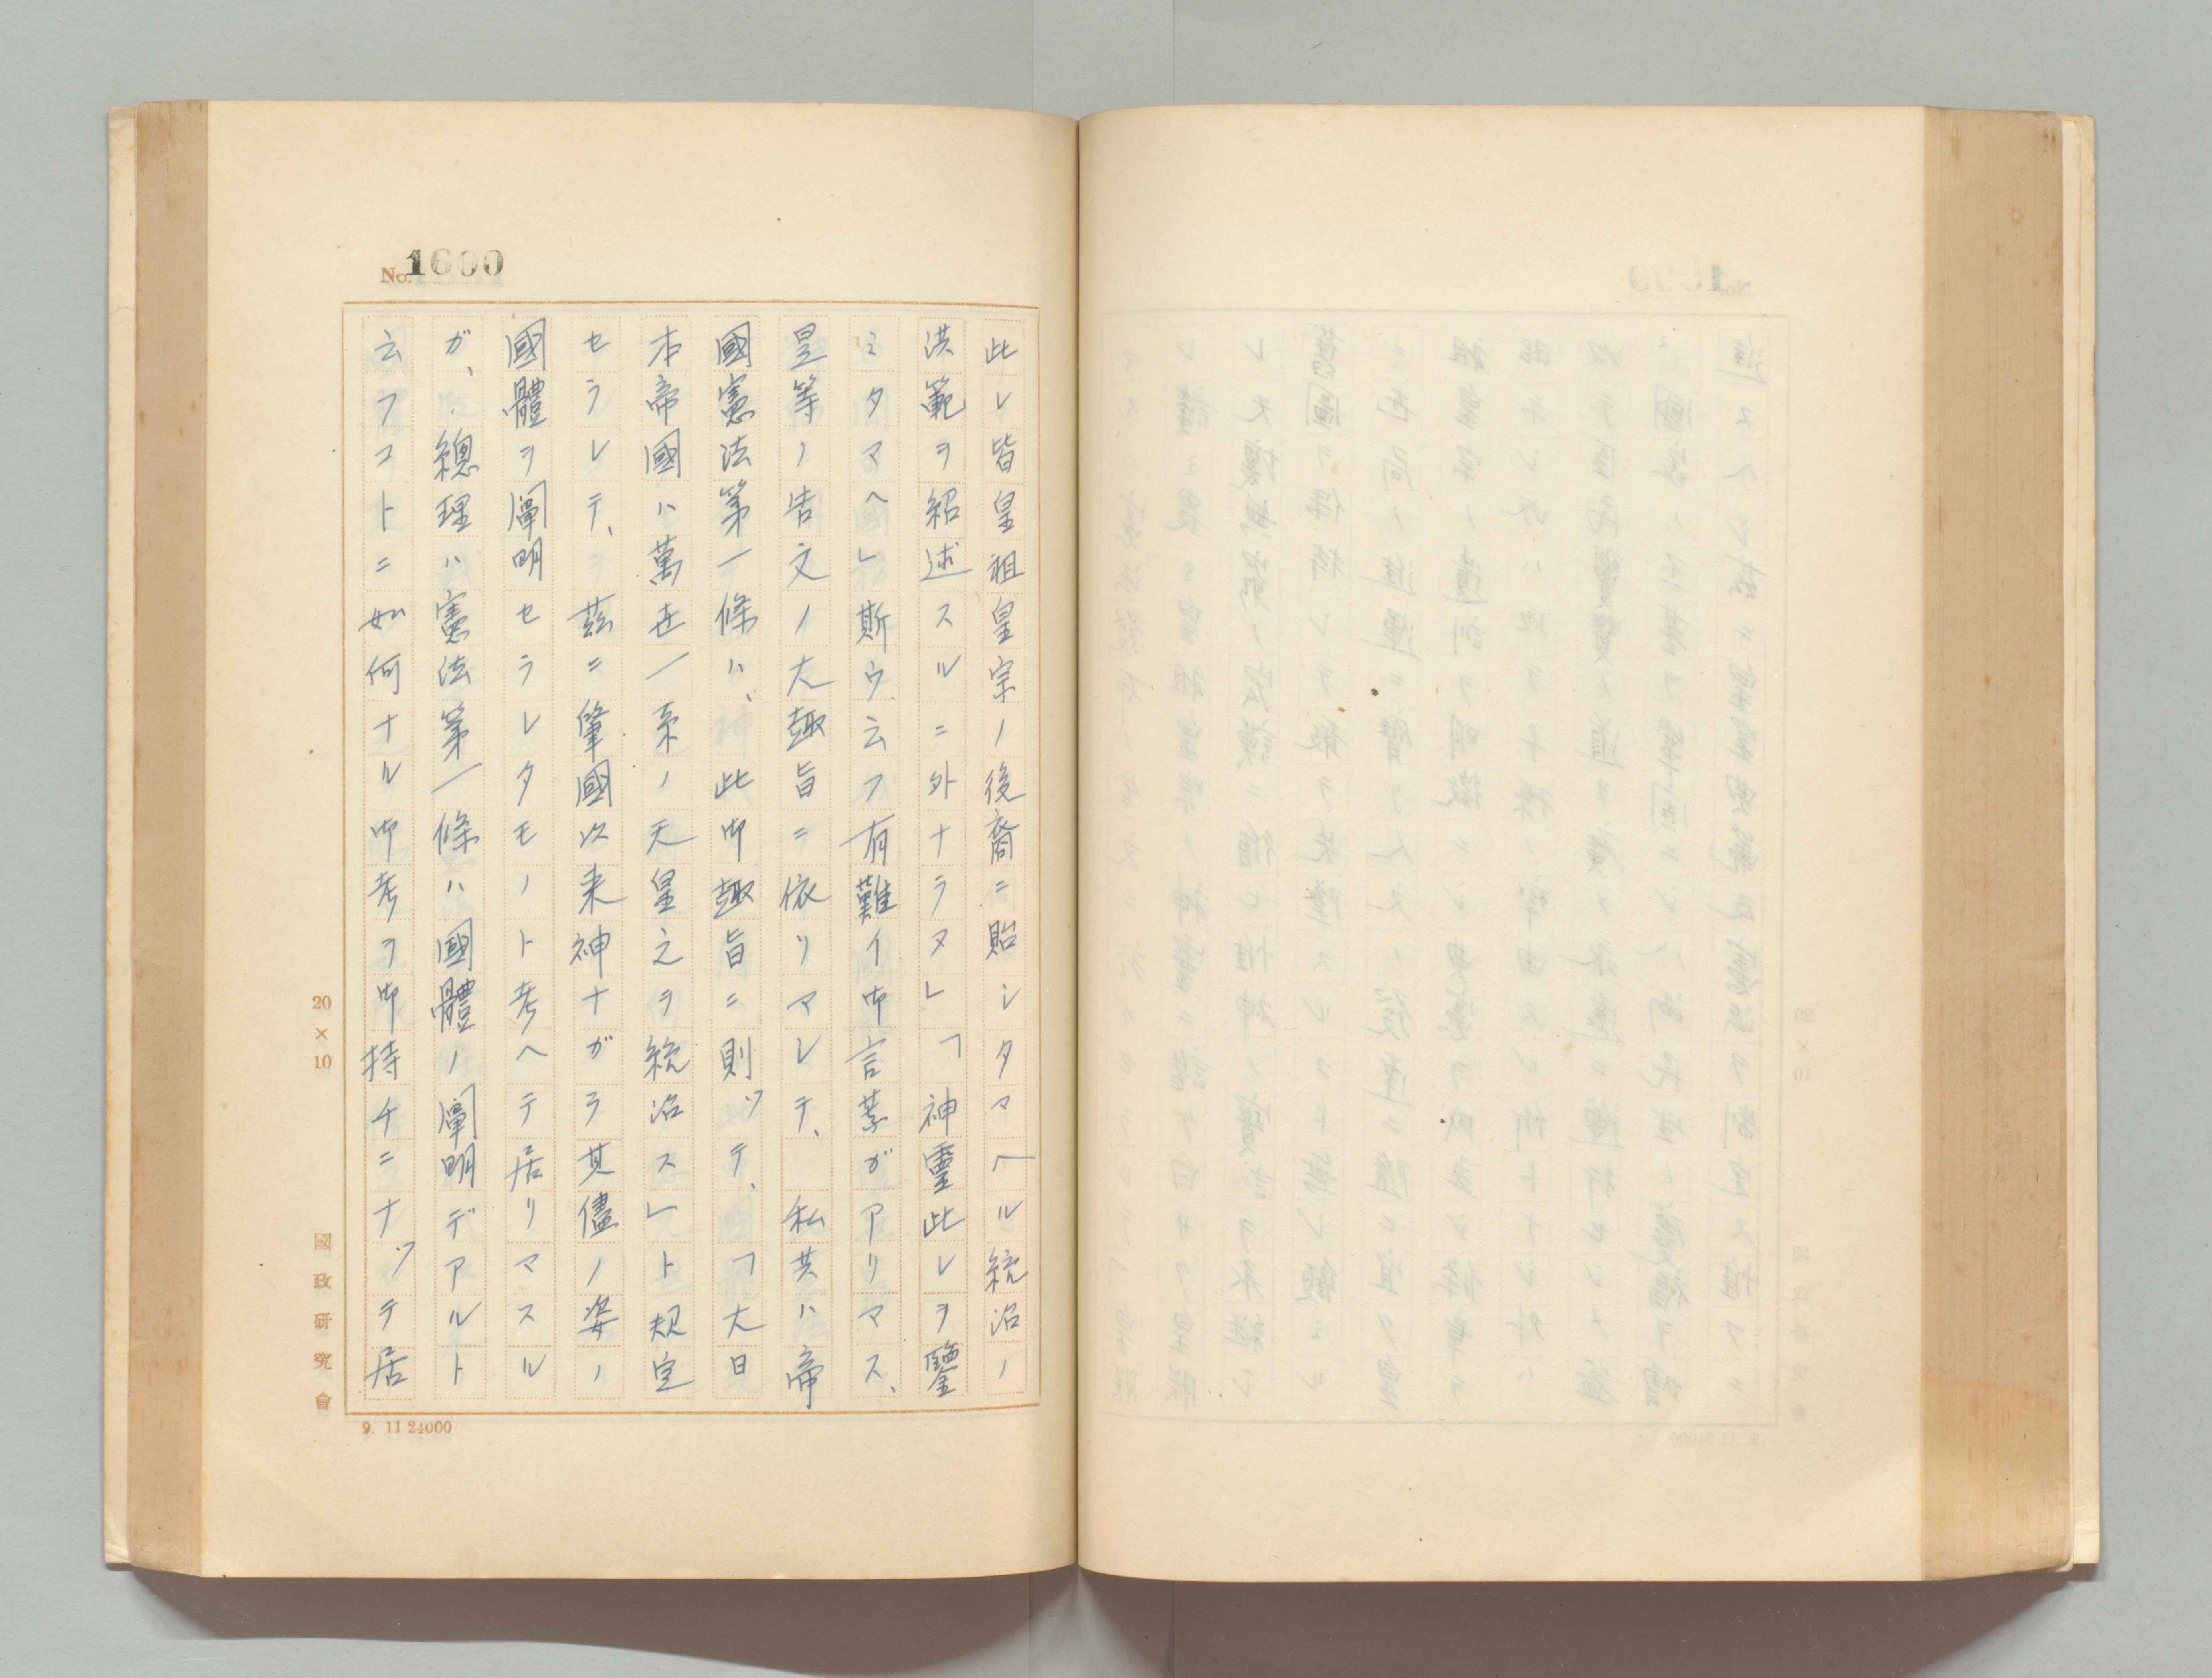 No. 1600
此レ皆皇祖皇宗ノ後裔ニ貽シタマヘル統治ノ
洪範ヲ紹述スルニ外ナラヌ」「神靈此レヲ鑒
ミタマヘ」斯ウ云フ有難イ御言葉ガアリマス、
是等ノ告文ノ大趣旨ニ依リマシテ、私共ハ帝
國憲法第一條ハ、此御趣旨ニ則ツテ、「大日
本帝國ハ萬世一系ノ天皇之ヲ統治ス」ト規定
セラレテ、茲ニ肇國以来神ナガラ其儘ノ姿ノ
國體ヲ闡明セラレタモノト考ヘテ居リマスル
ガ、總理ハ憲法第一條ハ國體ノ闡明デアルト
云フコトニ如何ナル御考ヲ御持チニナツテ居
20×10
國政研究會
9. 11 24000